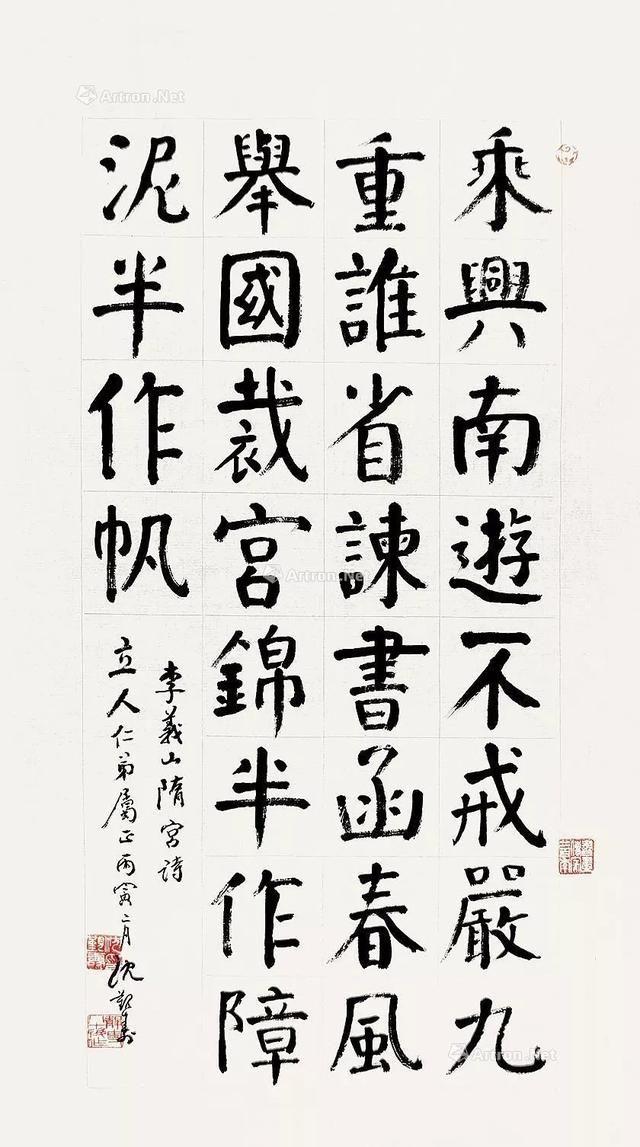 乘興南遊不戒嚴九
重誰省諫書函春風
舉國裁宮錦半作障
泥半作帆
李義山隋宮詩
立人仁弟屬正丙寅二月沈覲壽
Artron.Net
Artron.Net
Artron.Net